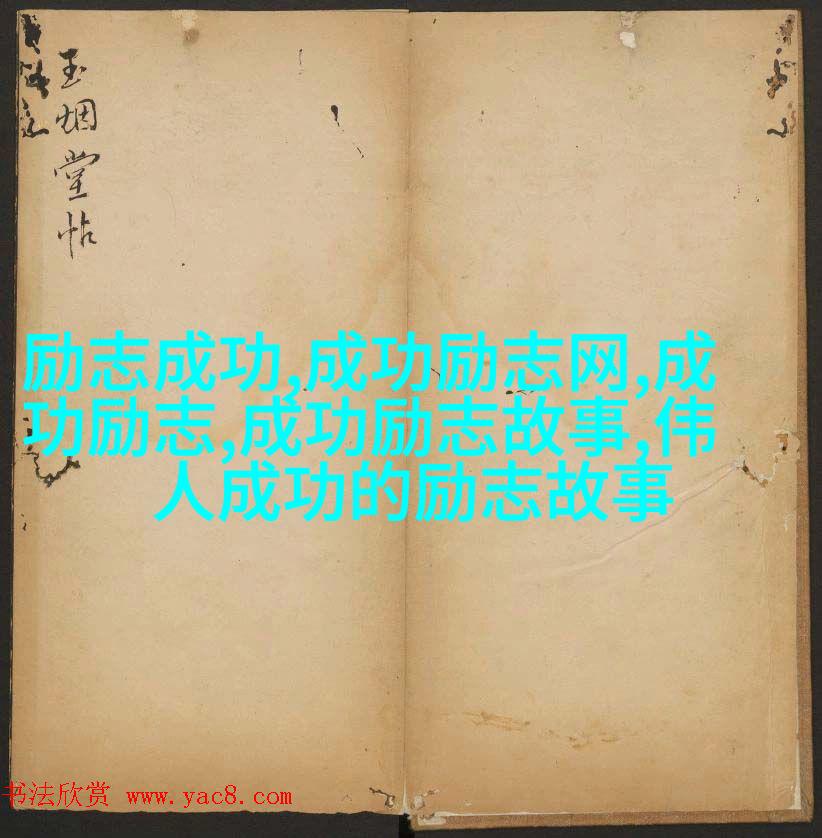 玉烟堂帖
励志成功,成功励志网,成
功励志,成功励志故事,伟
人成功的励志故事
书法欣赏 www.yac8.com